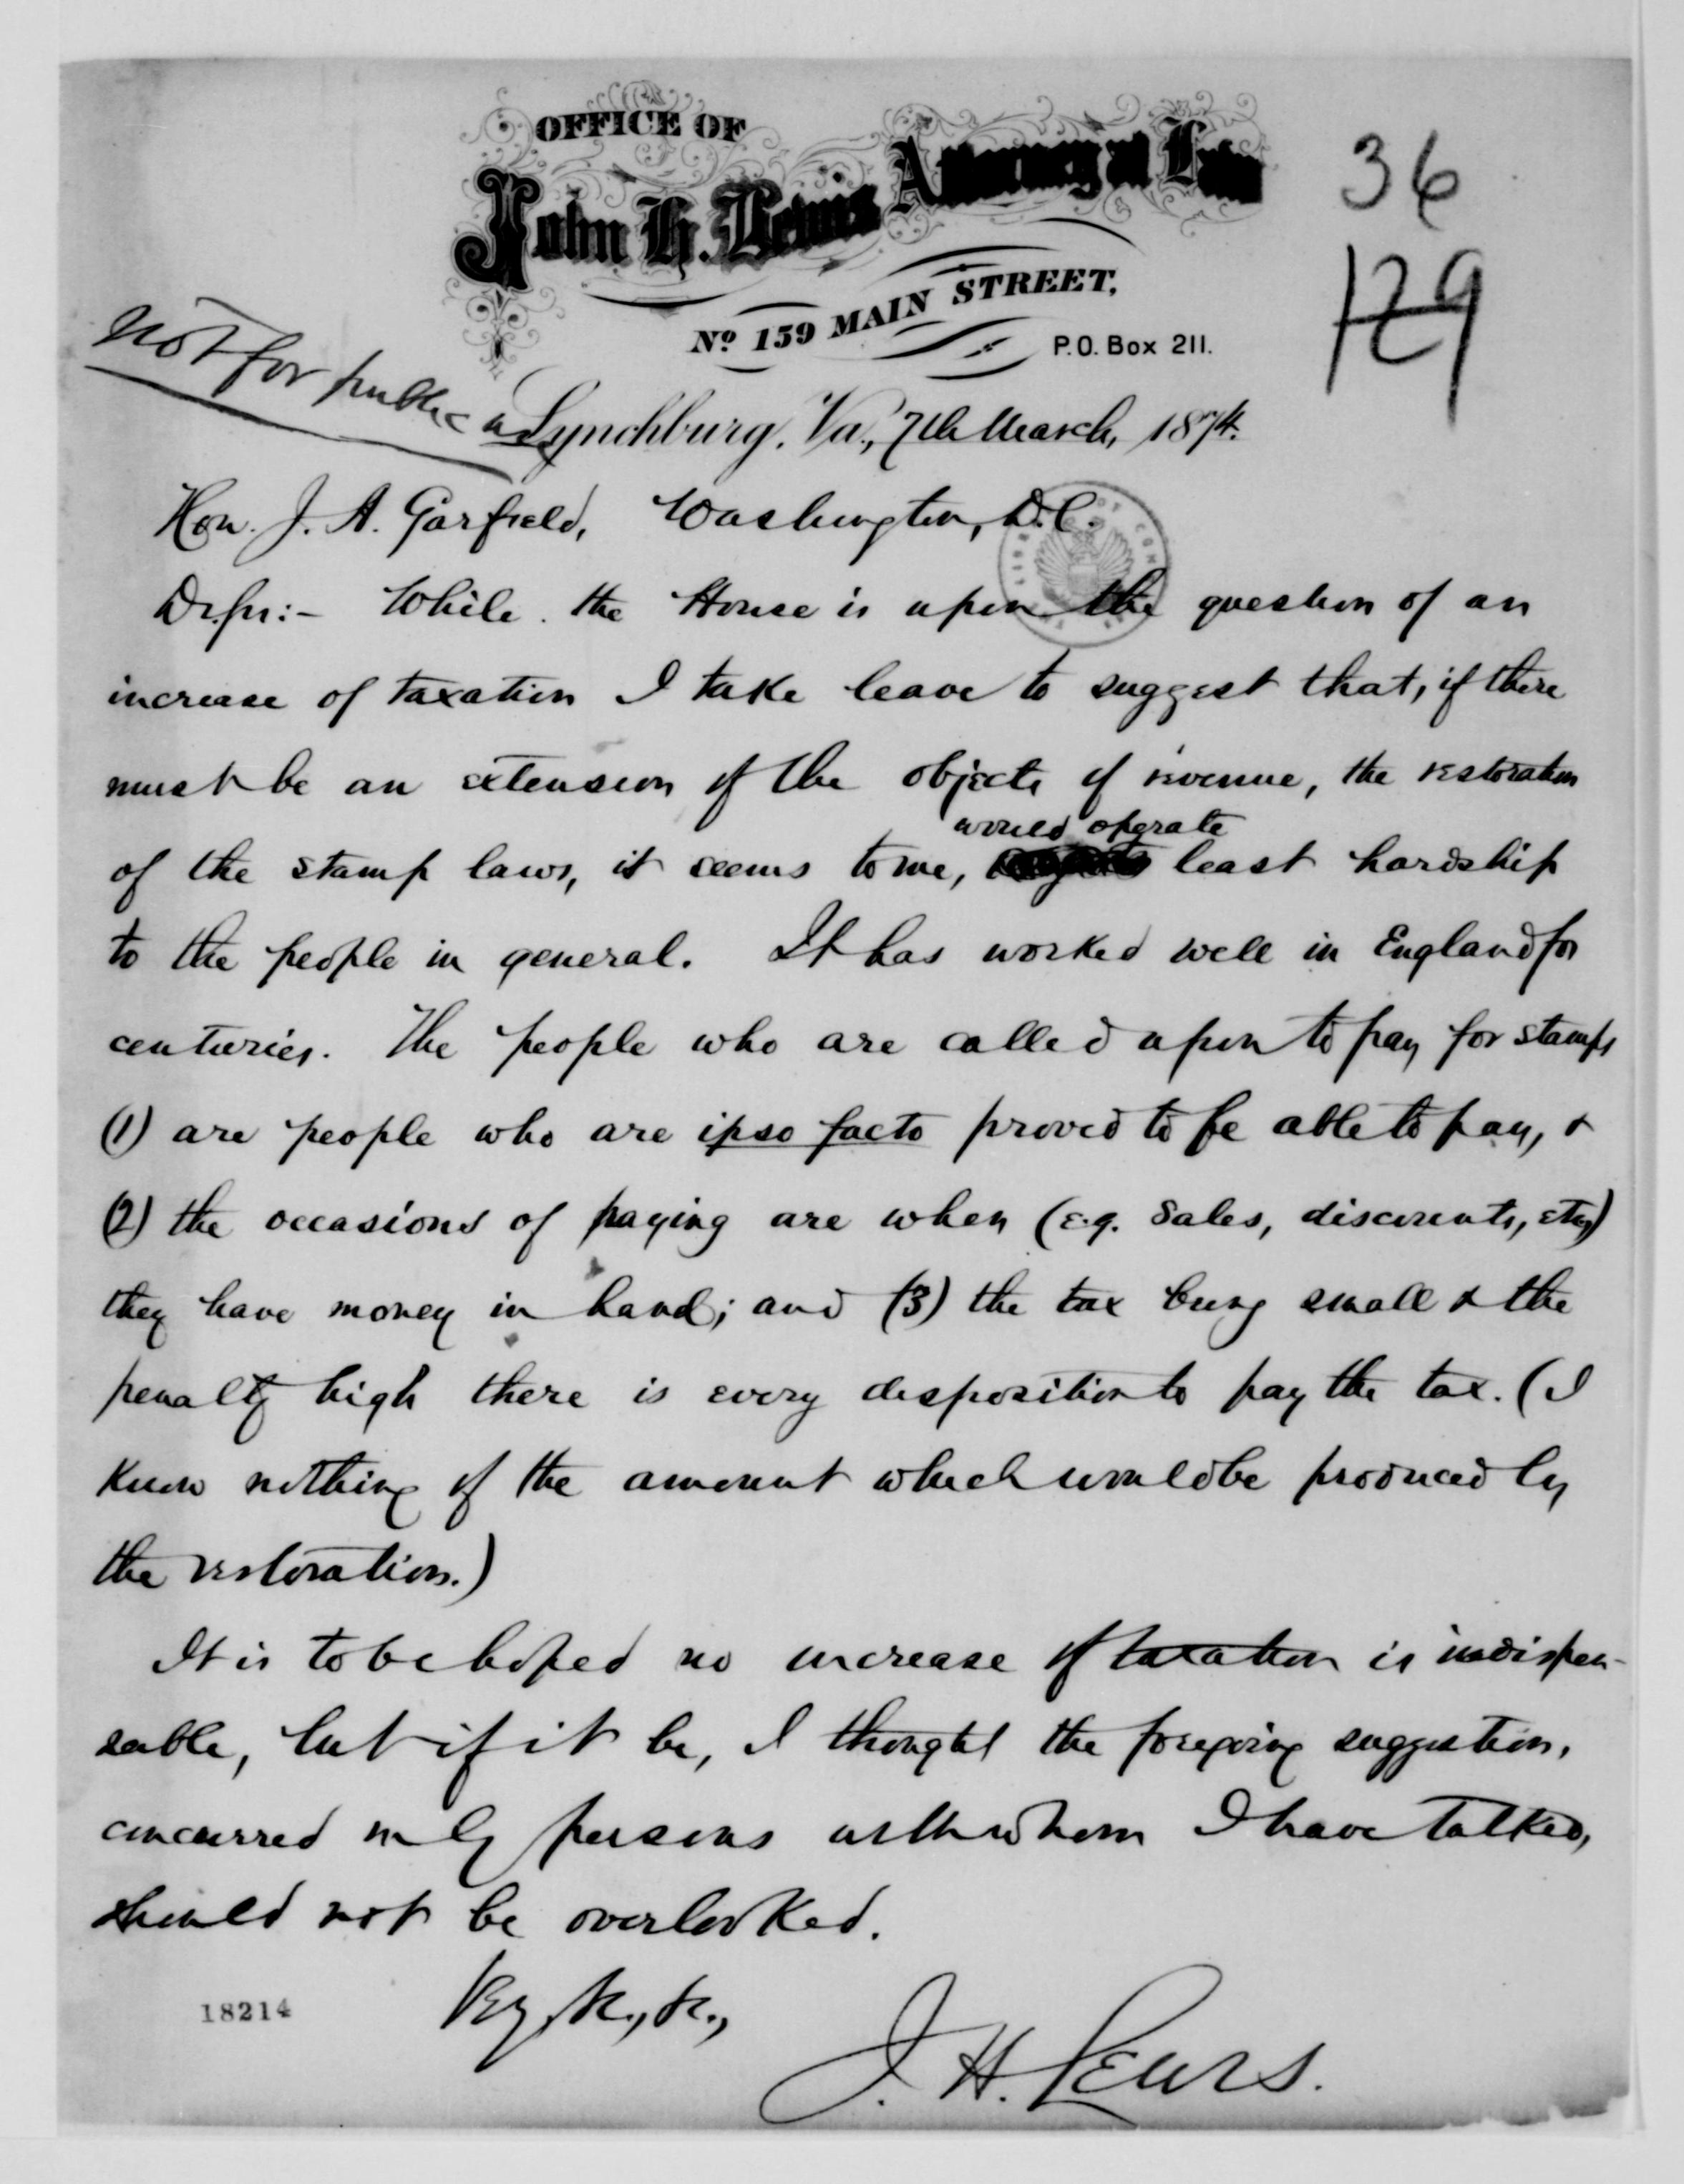 OFFICE OF
John H. Lewis Attorney at Law
No. 159 MAIN STREET,
P.O. Box 211.
36
129
Not for public
Lynchburg, Va., 7th March, 1874.
Hon. J. A. Garfield, Washington, D.C.
Dr. Sir:- While the House is upon the question of an
increase of taxation I take leave to suggest that, if there
must be an extension of the objects of revenue, the restoration
would operate
of the stamp laws, it seems to me, least hardship
to the people in general. It has worked well in England for
centuries. The people who are called upon to pay for stamps
(1) are people who are ipso facto proved to be able to pay, &
(2) the occasions of paying are when (e.g. sales, discounts, etc)
they have money in hand; and (3) the tax being small & the
penalty high there is every disposition to pay the tax. (I
know nothing of the amount which would be produced by
the restoration.)
It is to be hoped no increase of taxation is indispen-
sable, but if it be, I thought the foregoing suggestion,
concurred in by persons with whom I have talked,
should not be overlooked.
Vy &c., &c.,
J. H. Lewis.
18214